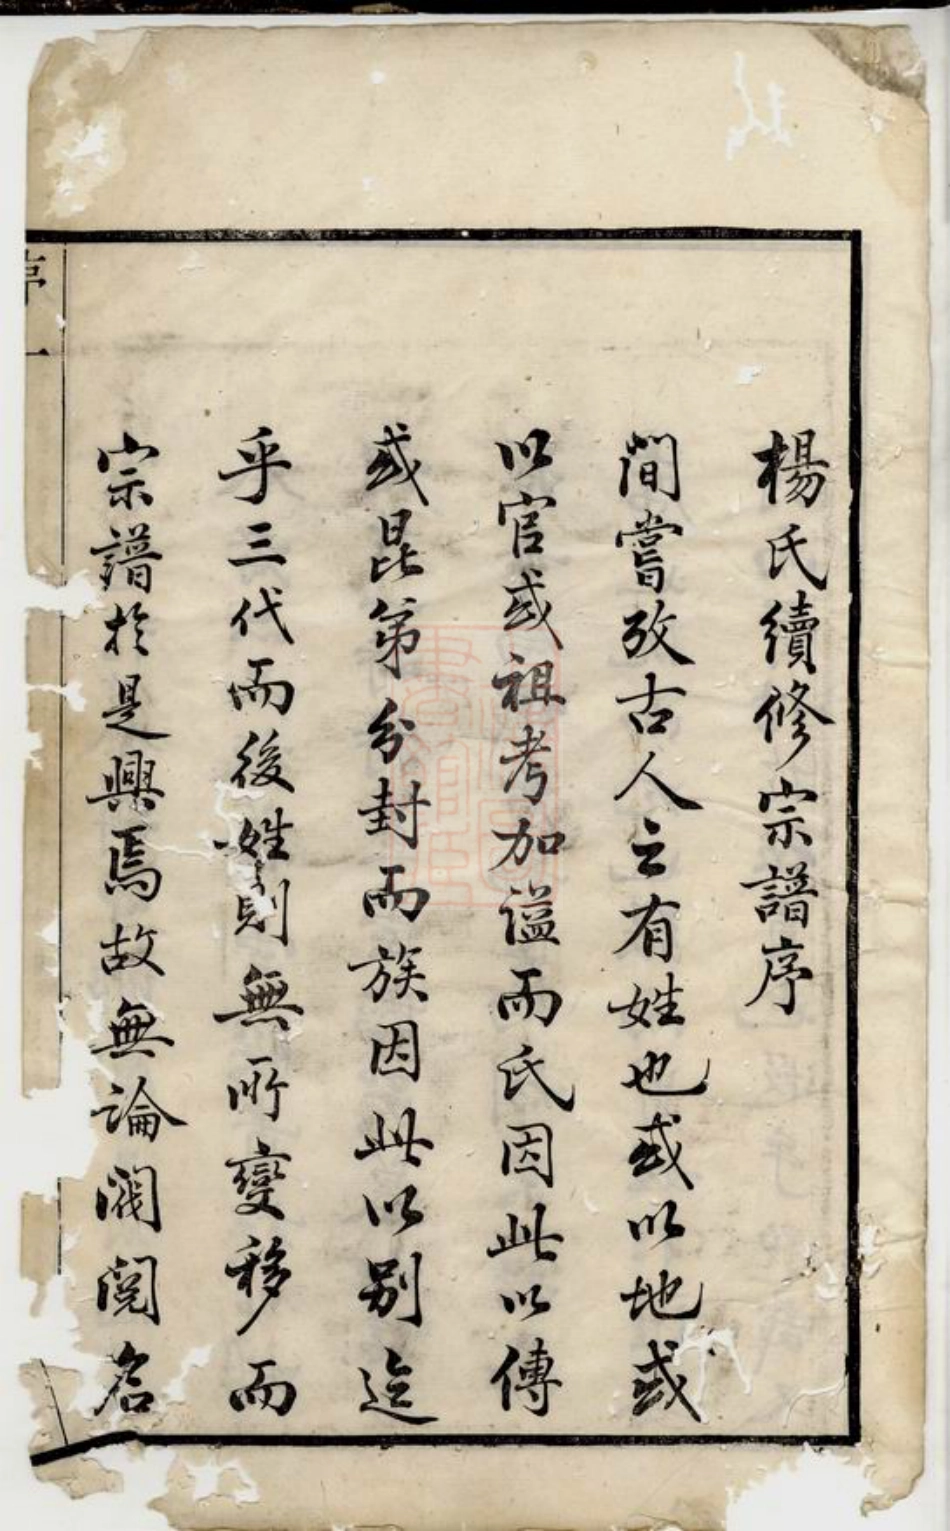 楊氏續修宗譜序
間嘗攷古人之有姓也或以地或
以官或祖考加謚而氏因此以傳
或昆弟分封而族因此以別迨
乎三代而後姓則無所變移而
宗譜於是興焉故無論閥閱名
序 一